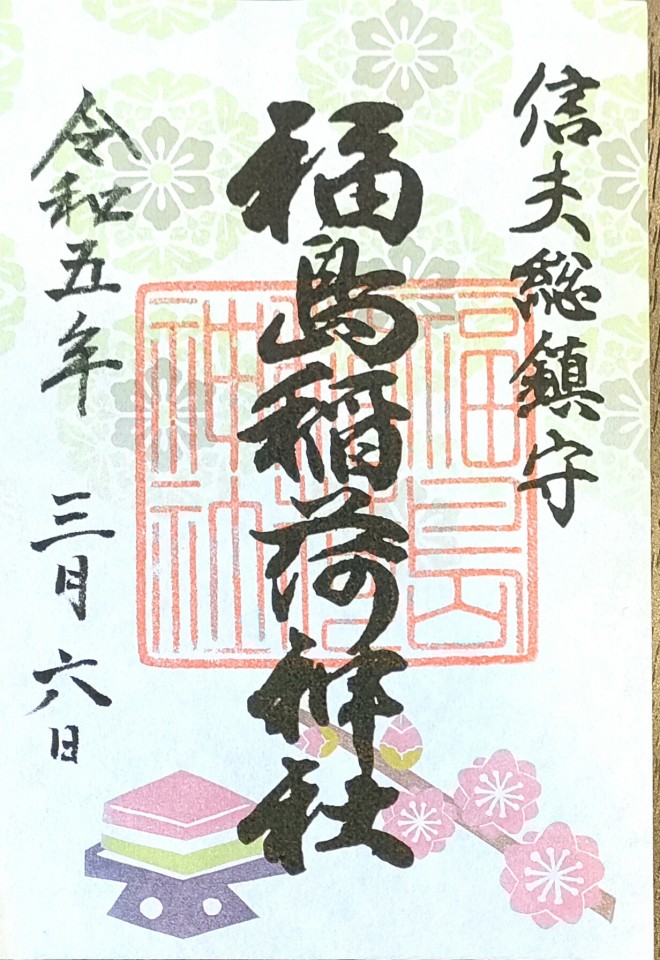 信夫総鎮守
福島稲荷神社
福島稲荷神社
令和五年 三月 六日